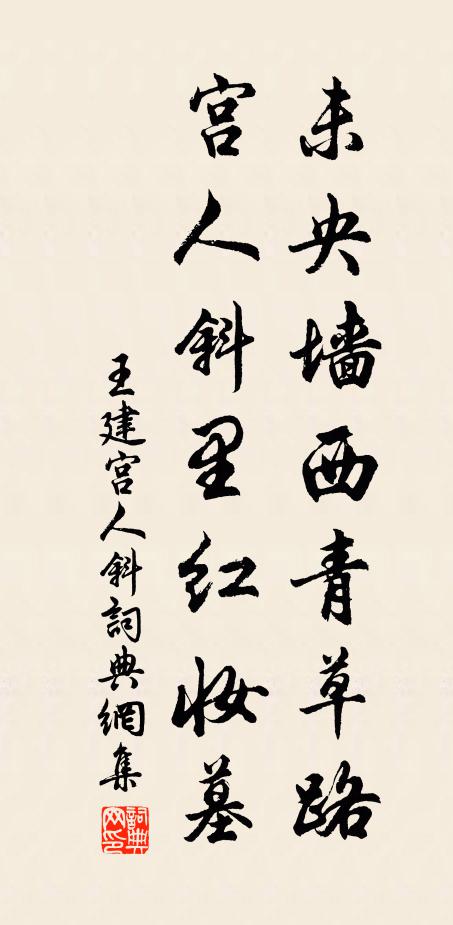 未央墙西青草路
宫人斜里红妆墓
王建宫人斜詞典網集
詞典網印